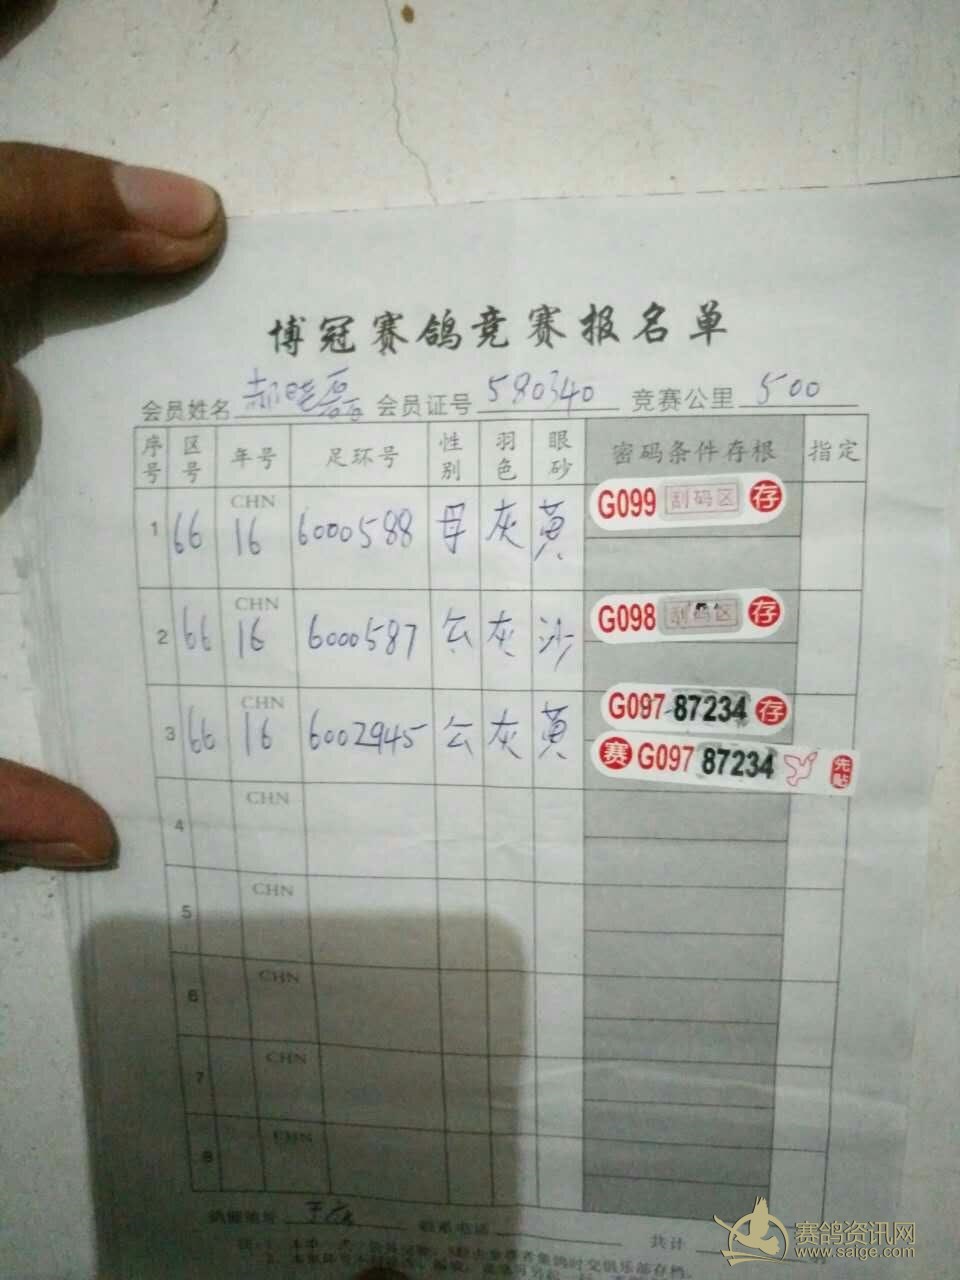 博冠赛鸽竞赛报名单
会员姓名 郝晓磊 会员证号 580340 竞赛公里 500
序号 区号 年号 足环号 性别 羽色 眼砂 密码条件存根 指定
1 66 CHN 16 6000588 母 灰 黄 G099 刮码区 存
2 66 CHN 16 6000587 公 灰 沙 G098 刮码区 存
3 66 CHN 16 6002945 公 灰 黄 G097 87234 存
赛 G097 87234 先帖
4 CHN
5 CHN
6 CHN
7 CHN
8 CHN
鸽棚地址 联系电话
共计
赛鸽资讯网
www.saige.com